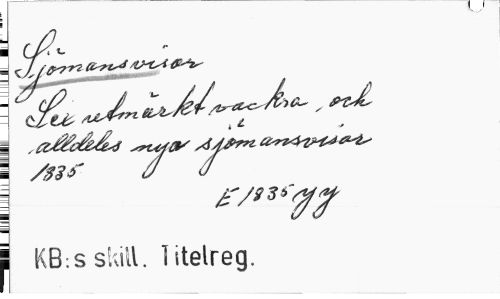 Sjömansvisor
Sex utmärkt vackra, och
alldeles nya sjömansvisor
1835
E 1835 yy
KB:s skill. Titelreg.